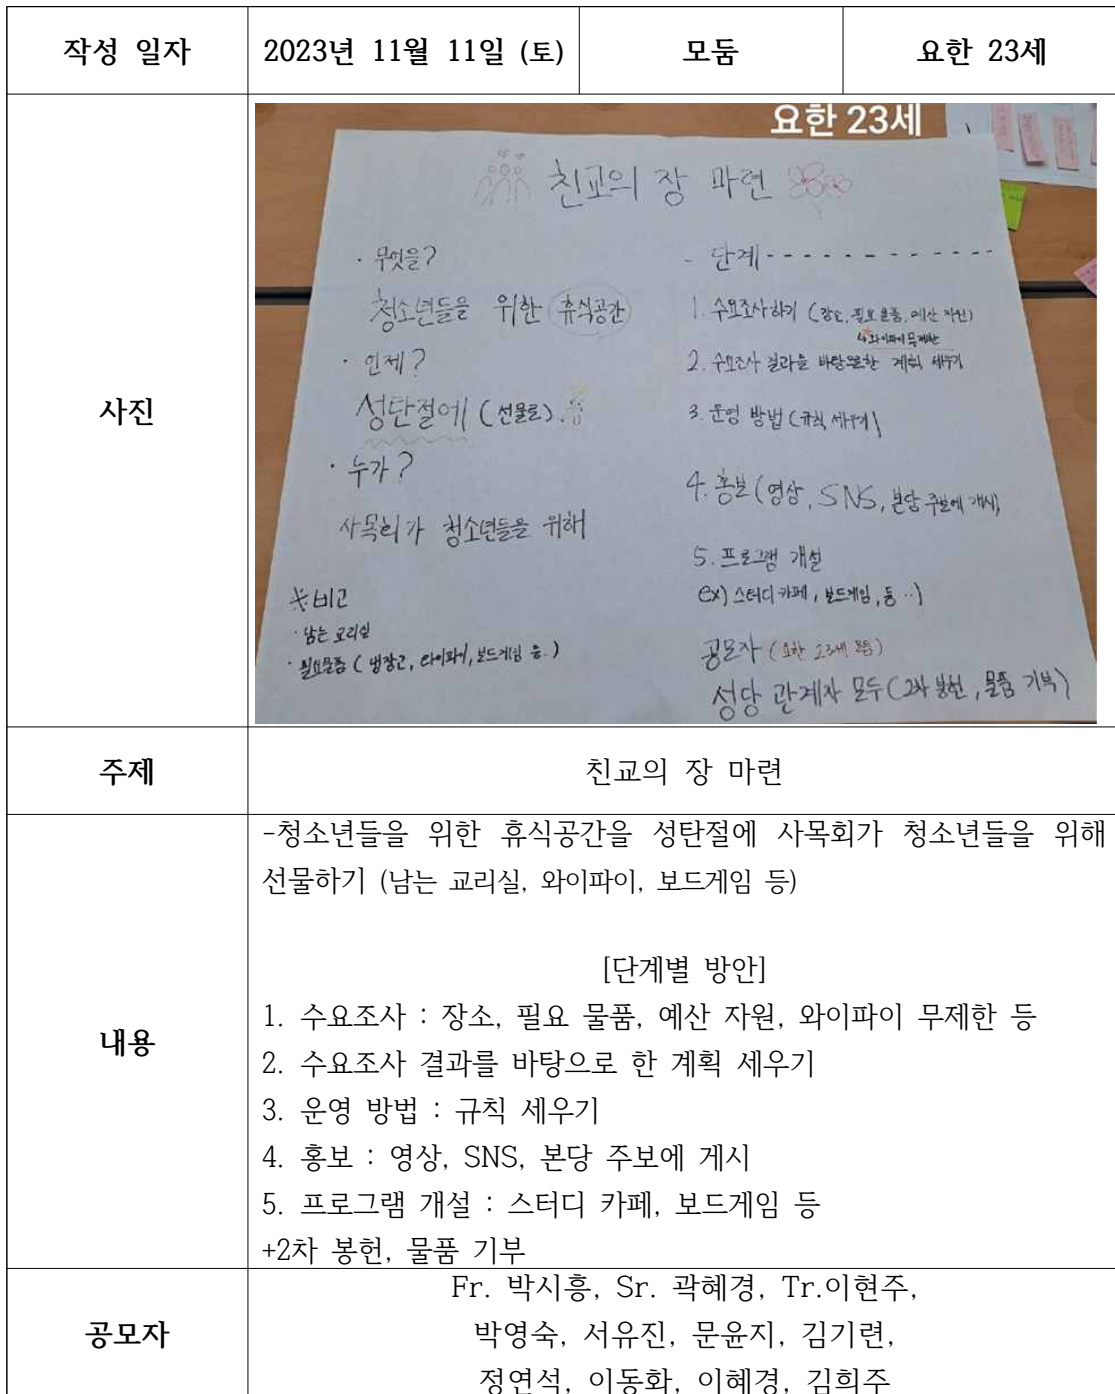 작성 일자
2023년 11월 11일 (토)
모둠
요한 23세
사진
요한 23세
친교의 장 마련
· 무엇을?
청소년들을 위한 휴식공간
· 언제?
성탄절에 (선물로).
· 누가?
사목회가 청소년들을 위해
※비고
· 남는 교리실
· 필요물품 ( 냉장고, 와이파이, 보드게임 등.. )
- 단계 - - - - - - - - - - -
1. 수요조사하기 (장소, 필요 물품, 예산 자원)
↳와이파이 무제한
2. 수요조사 결과를 바탕으로한 계획 세우기
3. 운영 방법 (규칙 세우기)
4. 홍보 (영상, SNS, 본당 주보에 게시)
5. 프로그램 개설
ex) 스터디 카페, 보드게임, 등 ..)
공모자 (요한 23세 모둠)
성당 관계자 모두 (2차 봉헌, 물품 기부)
주제
친교의 장 마련
내용
-청소년들을 위한 휴식공간을 성탄절에 사목회가 청소년들을 위해
선물하기 (남는 교리실, 와이파이, 보드게임 등)
[단계별 방안]
1. 수요조사 : 장소, 필요 물품, 예산 자원, 와이파이 무제한 등
2. 수요조사 결과를 바탕으로 한 계획 세우기
3. 운영 방법 : 규칙 세우기
4. 홍보 : 영상, SNS, 본당 주보에 게시
5. 프로그램 개설 : 스터디 카페, 보드게임 등
+2차 봉헌, 물품 기부
공모자
Fr. 박시흥, Sr. 곽혜경, Tr.이현주,
박영숙, 서유진, 문윤지, 김기련,
정연석, 이동화, 이혜경, 김희주